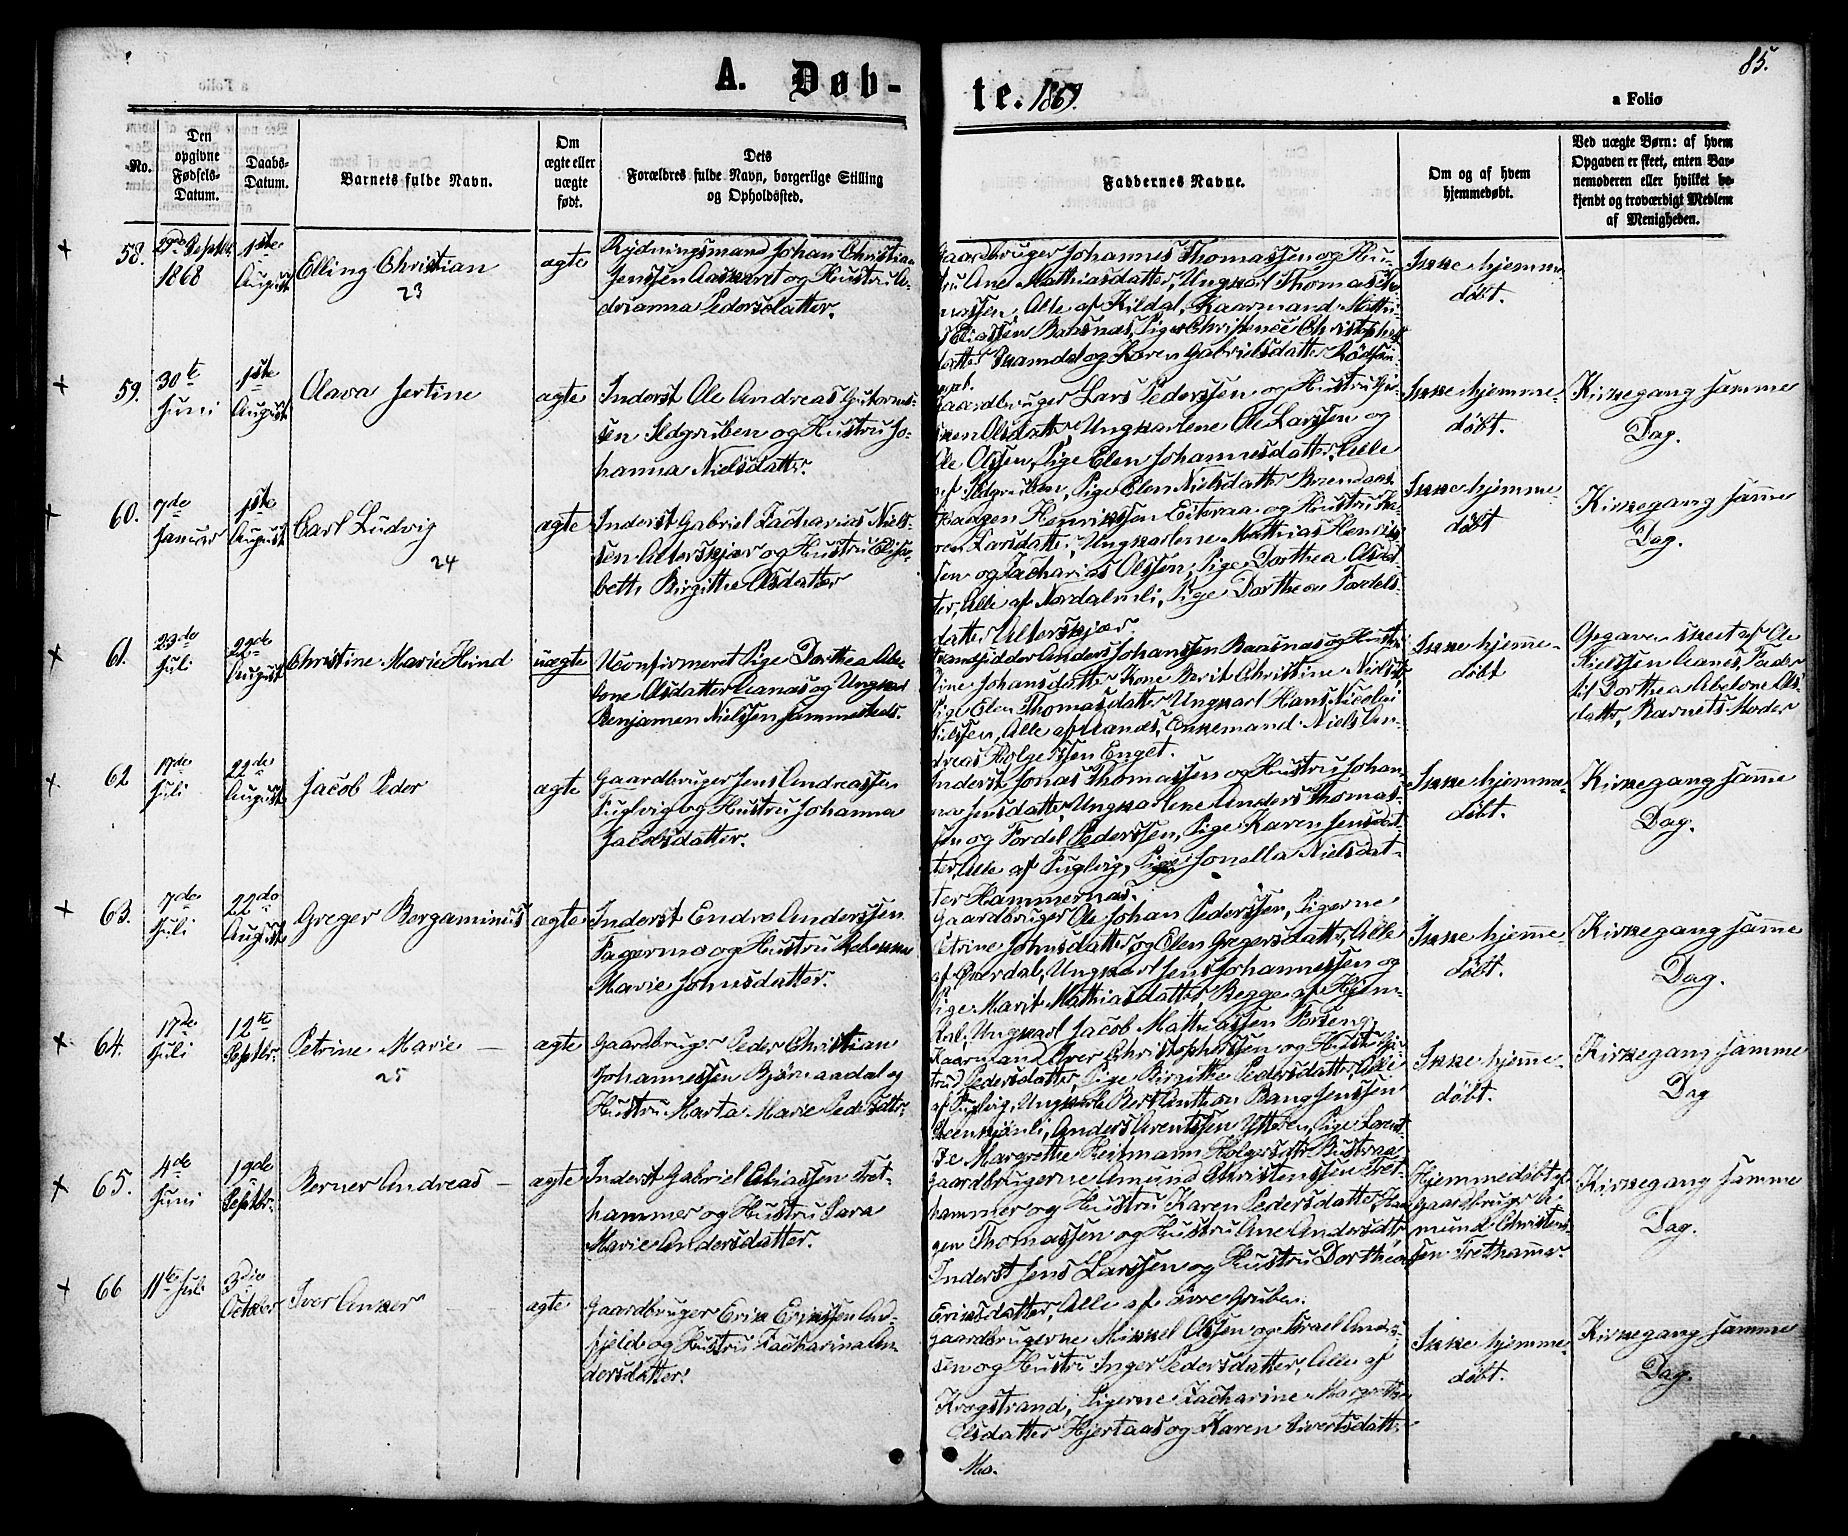 85.
A. Døb-
te. 1869.
a Folio
No.
Den
opgivne
Fødsels-
Datum.
Daabs-
Datum.
Barnets fulde Navn.
Om
ægte eller
uægte
født.
Dets
Forældres fulde Navn, borgerlige Stilling
og Opholdssted.
Faddernes Navne.
Om og af hvem
hjemmedøbt.
Ved uægte Børn: af hvem
Opgaven er skeet, enten Bar-
nemoderen eller hvilket be-
kjendt og troværdigt Medlem
af Menigheden.
58.
1868
1ste
August
Elling Christian
23
ægte
Rydningsmand Johan Christian
Jenssen Aaskaret og Hustru A-
drianna Pedersdatter.
Gaardbruger Johannes Thomassen og Hu-
stru Ane Mathiasdatter, Ungkarl Thomas Tho-
massen, Alle af Kildal, Kaarmand Mathi-
Eliassen Baasnæs, Pige Christence Christophers
datter og Karen Gabrielsdatter
Ikke hjemme-
døbt.
59.
30te
Juni
1ste
August
Olava Jertine
ægte
Inderst Ole Andreas Gutorms-
sen Ildgruben og Hustru Jo-
hanna Nielsdatter.
Gaardbruger Lars Pederssen og Hustru
Olsdatter, Ungkarlene Ole Larssen og
Ole Olssen, Pige Elen Johannesdatter, Alle
af Ildgruben, Pige Elen Nielsdatter
Ikke hjemme-
døbt.
Kirkegang samme
Dag.
60.
7de
Januar
1ste
August
Carl Ludvig
24
ægte
Inderst Gabriel Zacharias Niels-
sen Alterskjær og Hustru Elisa-
beth Birgitte Olsdatter
Haagen Henrikssen Eiteraa og Hustru Ka-
ren Larsdatter, Ungkarlene Mathias Henriks
sen og Zacharias Olssen, Pige Dorthea Olsdat
ter, Alle af Nordalmli, Pige Dorthea Tordels-
datter Alterskjær
Ikke hjemme-
døbt
Kirkegang samme
Dag.
61.
23de
Juli
22de
August
Christine Marie Hind
uægte
Uconfirmeret Pige Dorthea Abe-
lone Olsdatter Aanæs og Ungkarl
Benjamen Nielssen sammesteds.
Strandsidder Anders Johanssen Baasnæs og Hustru
line Johansdatter, Kone Berit Christine Nielsd.
Pige Elen Thomasdatter, Ungkarl Hans Nicolai
Nielssen, Alle af Aanæs, Enkemand Niels An-
dreas Holgerssen Enget.
Ikke hjemme-
døbt
Opgaven skeet af Ole
Nielssen Aanes, Fader
til Dorthea Abelone Ols-
datter, Barnets Moder
62
17de
Juli
22de
August
Jacob Peder
ægte
Gaardbruger Jens Andreassen
Fuglvig og Hustru Johanna
Jacobsdatter.
Inderst Jonas Thomassen og Hustru Johan-
na Jensdatter, Ungkarlene Anders Thomas-
sen og Tordel Pederssen, Pige Karen Jensdat-
ter, Alle af Fuglvig, Pige Jonella Nielsdat-
ter Hammernæs.
Ikke hjemme-
døbt.
Kirkegang samme
Dag.
63.
7de
Juli
22de
August
Greger Bergaminus
ægte
Inderst Endre Anderssen
Fagermo og Hustru Rebekka
Marie Johnsdatter.
Gaardbruger Ole Johan Pederssen, Pigerne
Petrine Johnsdatter og Elen Gregersdatter, Alle
af, Ungkarl Jens Johannessen og
Pige Marit Mathiasdatter, Begge af Hjem-
dal, Ungkarl Jacob Mathiassen Forseng.
Ikke hjemme-
døbt.
Kirkegang samme
Dag.
64.
17de
Juli
12te
Septbr.
Petrine Marie
25
ægte
Gaardbruger Peder Christian
Johannessen Bjørnaadal og
Hustru Marta Marie Pedersdtr.
Kaarmand Iver Christopherssen og Hustru Gjer-
trud Pedersdatter, Pige Birgitte Pedersdatter, Alle
af Fuglvig, Ungkarle Bert Anthon Bangjenssen
Anders Arentssen Ytteren, Pige
Margrethe Heitmann Holgersdtr
Ikke hjemme-
døbt.
Kirkegang samme
Dag
65.
4de
Juni
19de
Septbr.
Berner Andreas
ægte
Inderst Gabriel Eliassen Tret-
hammer og Hustru Sara
Marie Andersdatter.
Gaardbrugerne Amund Christenssen Tret-
hammer og Hustru Karen Pedersdatter, Haa
gen Thomassen og Hustru Ane Andersdtr
Inderst Jens Larssen og Hustru Dorthea
Eriksdatter, Alle af Gruben.
Hjemmedøbt af
Gaardbruger A-
mund Christens-
sen Trethamr.
Kirkegang samme
Dag.
66
11te Juli
3die
October
Iver Anker
ægte
Gaardbruger Erik Erikssen And-
fjeld og Hustru Zacharina An-
dersdatter.
Gaardbrugerne Mikkel Olssen og Israel Anders-
sen og Hustru Inger Pedersdatter, Alle af
Krogstrand, Pigerne Zacharine Margrethe
Olsdatter Hjertaas og Karen Sivertsdatt-
Mo.
Ikke hjemme-
døbt.
Kirkegang samme
Dag.